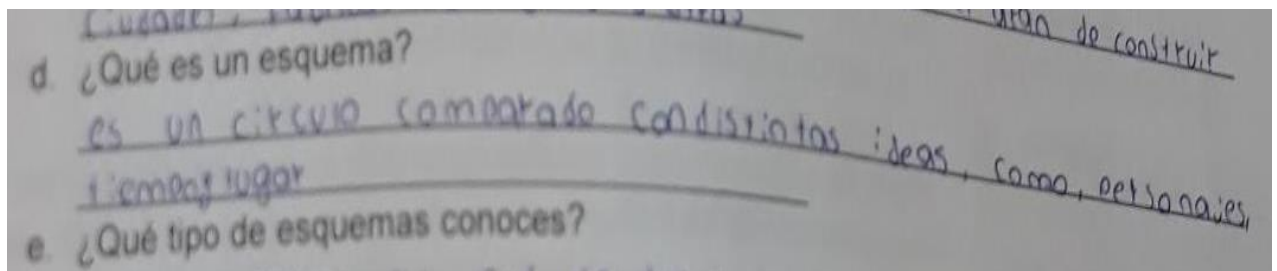 de construir
d. ¿Qué es un esquema?
es un circulo comparado con distintas ideas, como, personajes,
tiempo, lugar
e. ¿Qué tipo de esquemas conoces?